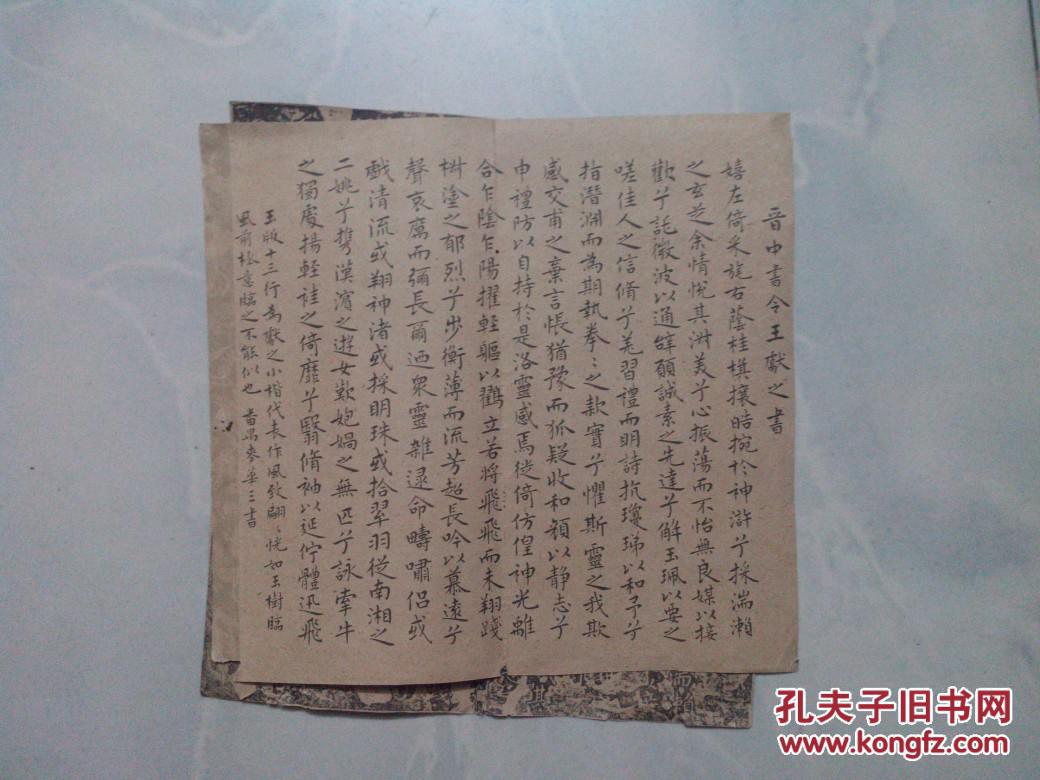 晉中書令王獻之書
嬉左倚采旄右蔭桂旗攘皓捥於神滸兮採湍瀨
之玄芝余情悅其淋美兮心振蕩而不怡無良媒以接
歡兮託微波以通辭願誠素之先達兮解玉珮以要之
嗟佳人之信脩兮羌習禮而明詩抗瓊珶以和予兮
指潛淵而為期執拳〻之款實兮懼斯靈之我欺
感交甫之棄言悵猶豫而狐疑收和顏以静志兮
申禮防以自持於是洛靈感焉徙倚仿偟神光離
合乍陰乍陽擢輕軀以鶴立若將飛飛而未翔踐
椒塗之郁烈兮步衡薄而流芳超長吟以慕遠兮
聲哀厲而彌長爾迺眾靈雜遝命疇嘯侶或
戲清流或翔神渚或採明珠或拾翠羽從南湘之
二姚兮携漢濱之遊女歎匏媧之無匹兮詠牽牛
之獨處揚輕袿之倚靡兮翳脩袖以延佇體迅飛
玉版十三行為獻之小楷代表作風致翩〻恍如玉樹臨
風前極意臨之不能似也 三書
孔夫子旧书网
www.kongfz.com